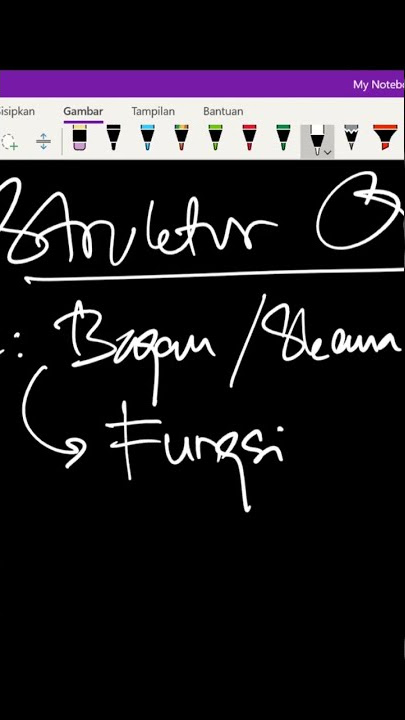 My Notebo
isipkan Gambar Tampilan Bantuan
Struktur O
: Bagan / Skema
Fungsi